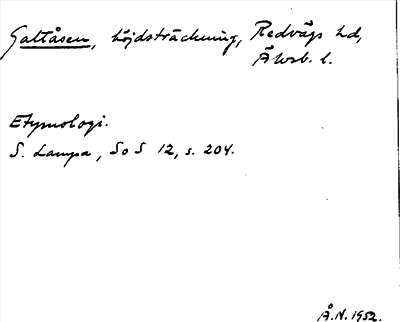 Galtåsen, höjdsträckning, Redvägs hd,
Älvsb. l.
Etymologi.
S. Lampa, SoS 12, s. 204.
Å.N. 1952.